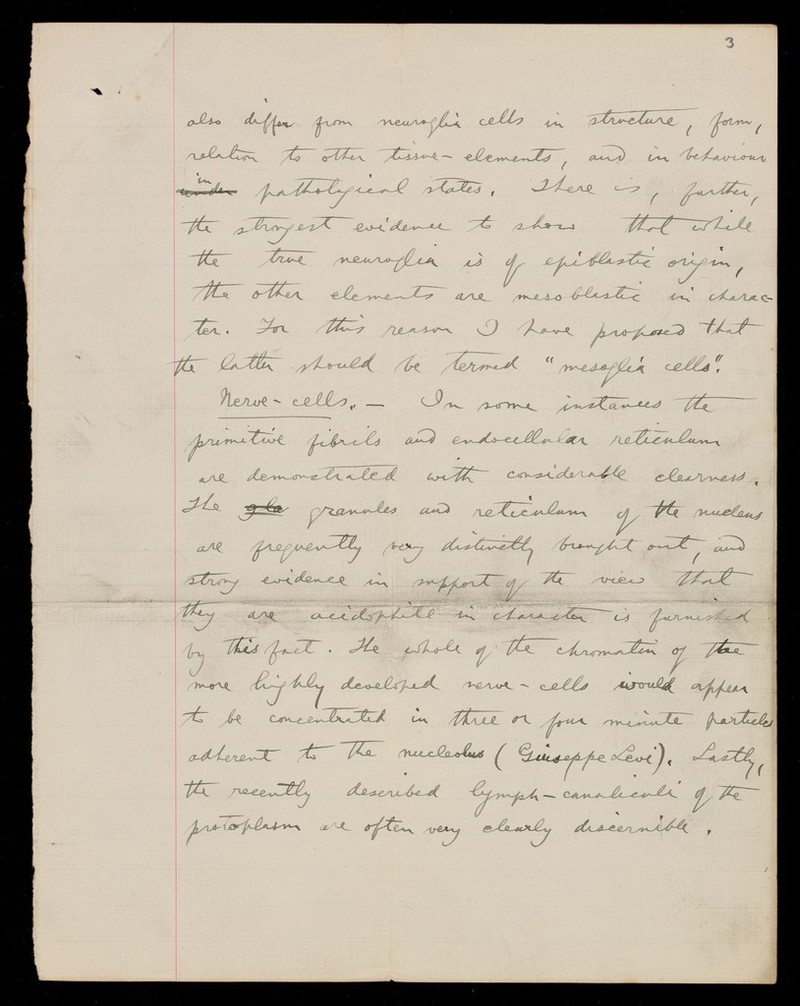 3
also differ from neuroglia cells in structure, form,
relation to other tissue-elements, and in behaviour
in
under pathological states. There is, further,
the strongest evidence to show that while
the true neuroglia is of epiblastic origin,
the other elements are mesoblastic in charac-
ter. For this reason I have proposed that
the latter should be termed "mesoglia cells".
Nerve-cells. — In some instances the
primitive fibrils and endocellular reticulum
are demonstrated with considerable clearness.
The gla granules and reticulum of the nucleus
are frequently very distinctly brought out, and
strong evidence in support of the view that
they are acidophile in character is furnished
by this fact. The whole of the chromatin of the
more highly developed nerve-cells would appear
to be concentrated in three or four minute particles
adherent to the nucleolus (Giuseppe Levi). Lastly,
the recently described lymph-canaliculi of the
protoplasm are often very clearly discernible.